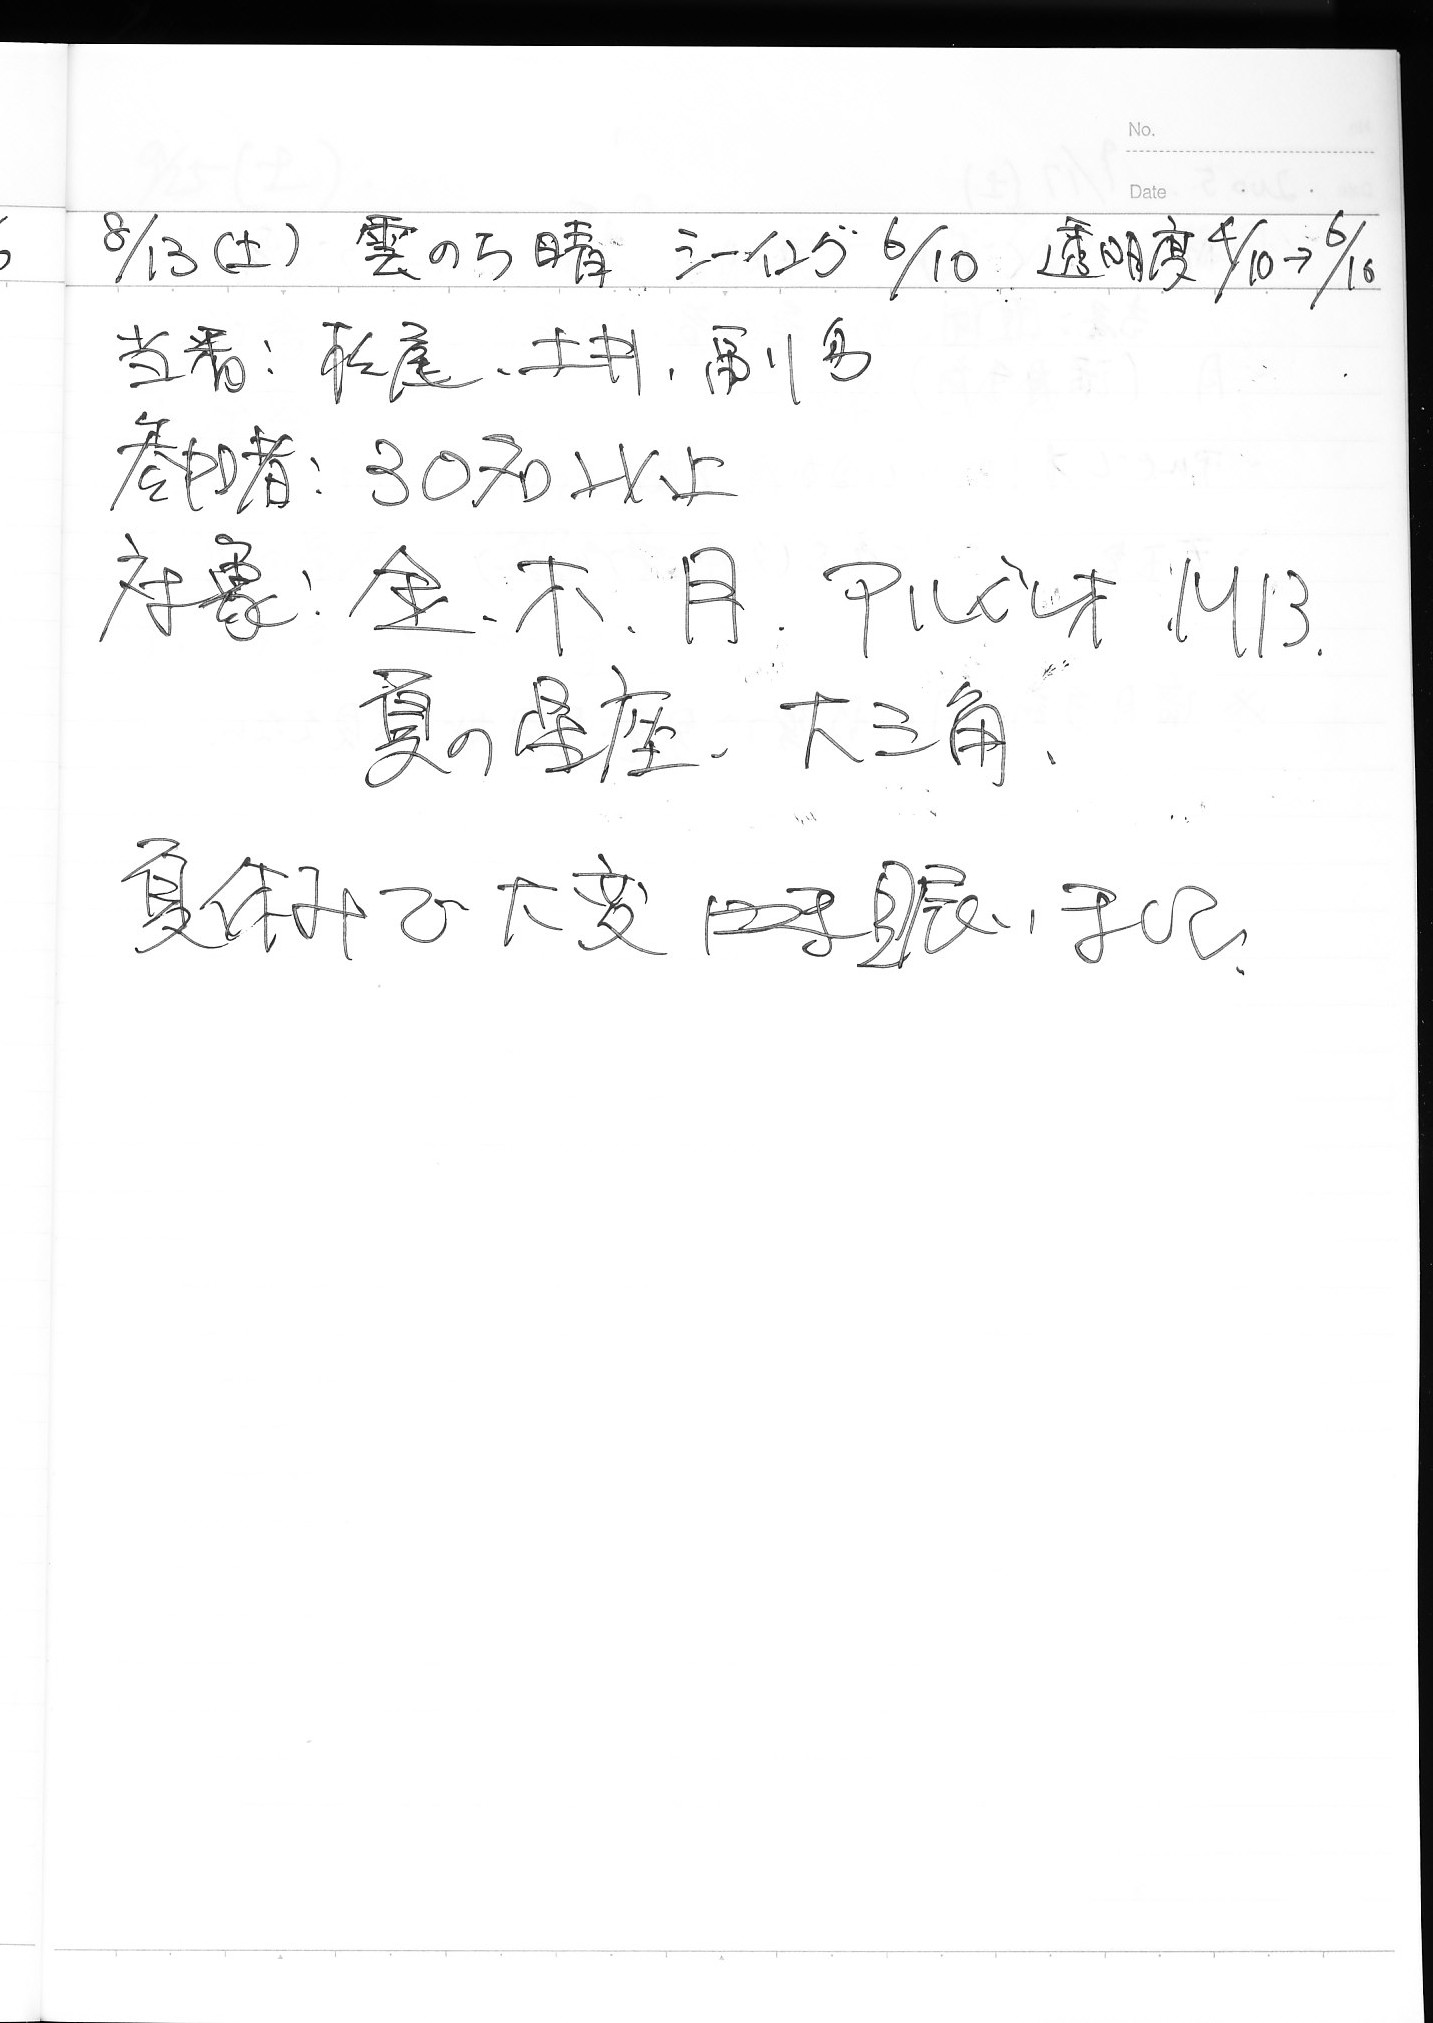 No.
Date
8/13(土) 雲のち晴 シーイング 6/10 透明度 4/10→6/10
当番: 松尾、土井、副島
参加者: 30名以上
対象: 金、木、月、アルビレオ M13.
夏の星座、大三角、
夏休みで大変 賑いました。